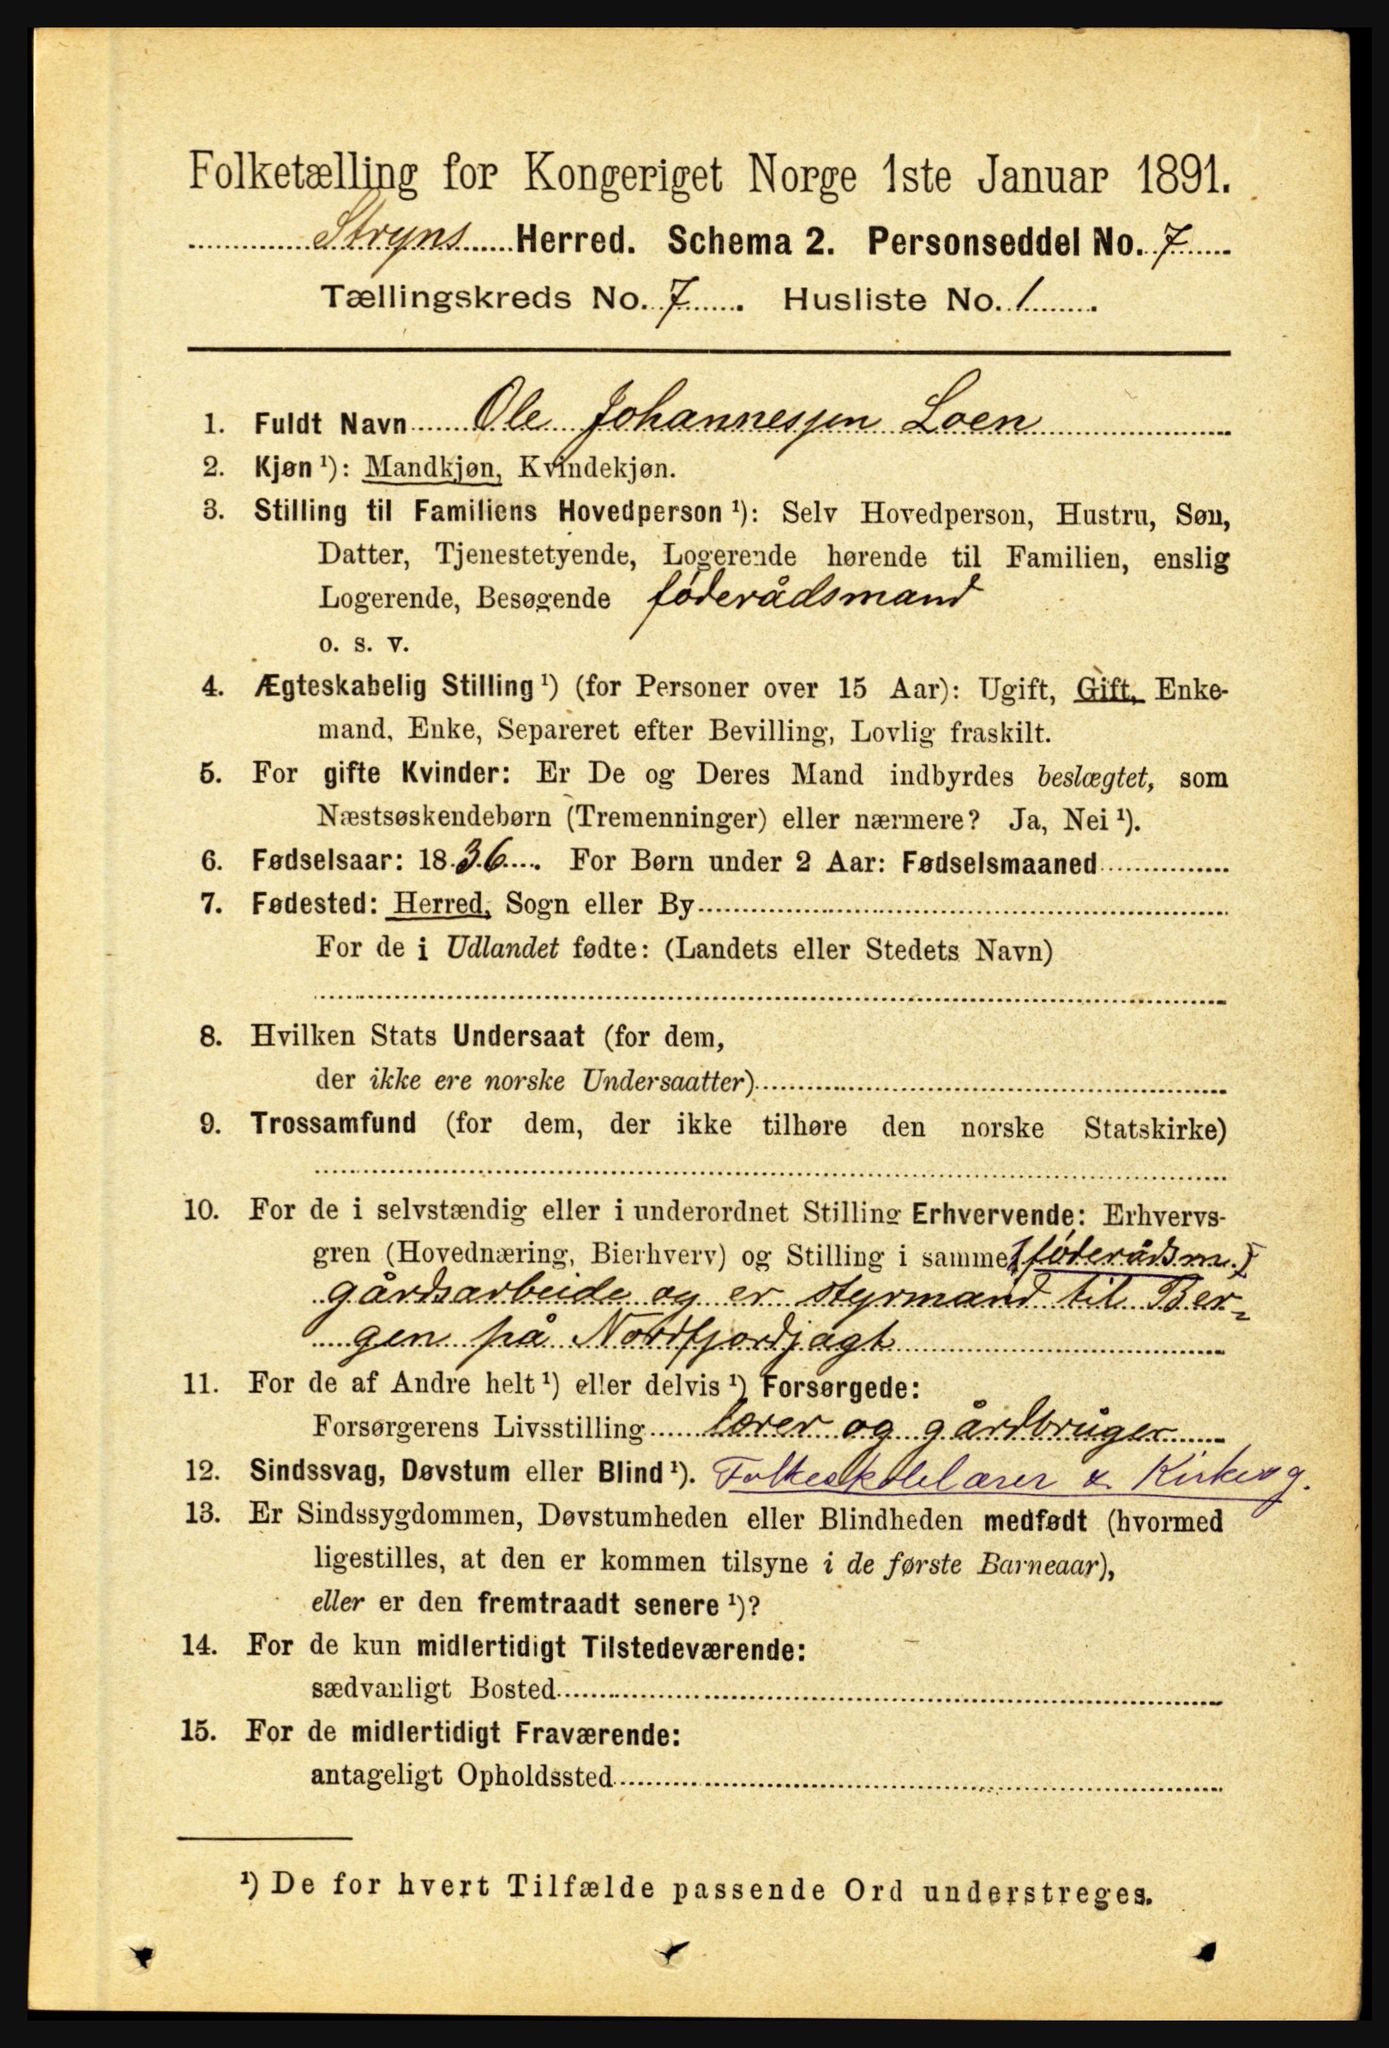 Folketælling for Kongeriget Norge 1ste Januar 1891.
Stryns Herred. Schema 2. Personseddel No. 7
Tællingskreds No. 7. Husliste No. 1.
1. Fuldt Navn Ole Johannessen Loen
2. Kjøn ¹): Mandkjøn, Kvindekjøn.
3. Stilling til Familiens Hovedperson ¹): Selv Hovedperson, Hustru, Søn,
Datter, Tjenestetyende, Logerende hørende til Familien, enslig
Logerende, Besøgende føderådsmand
o. s. v.
4. Ægteskabelig Stilling ¹) (for Personer over 15 Aar): Ugift, Gift, Enke-
mand, Enke, Separeret efter Bevilling, Lovlig fraskilt.
5. For gifte Kvinder: Er De og Deres Mand indbyrdes beslægtet, som
Næstsøskendebørn (Tremenninger) eller nærmere? Ja, Nei ¹).
6. Fødselsaar: 1836. For Børn under 2 Aar: Fødselsmaaned
7. Fødested: Herred, Sogn eller By
For de i Udlandet fødte: (Landets eller Stedets Navn)
8. Hvilken Stats Undersaat (for dem,
der ikke ere norske Undersaatter)
9. Trossamfund (for dem, der ikke tilhøre den norske Statskirke)
10. For de i selvstændig eller i underordnet Stilling Erhvervende: Erhvervs-
gren (Hovednæring, Bierhverv) og Stilling i samme (føderådsm.)
gårdsarbeide og er styrmand til Ber-
gen på Nordfjordjagt
11. For de af Andre helt ¹) eller delvis ¹) Forsørgede:
Forsørgerens Livsstilling lærer og gårdbruger
12. Sindssvag, Døvstum eller Blind ¹). Folkeskolelærer & Kirkesg.
13. Er Sindssygdommen, Døvstumheden eller Blindheden medfødt (hvormed
ligestilles, at den er kommen tilsyne i de første Barneaar),
eller er den fremtraadt senere ¹)?
14. For de kun midlertidigt Tilstedeværende:
sædvanligt Bosted
15. For de midlertidigt Fraværende:
antageligt Opholdssted
¹) De for hvert Tilfælde passende Ord understreges.